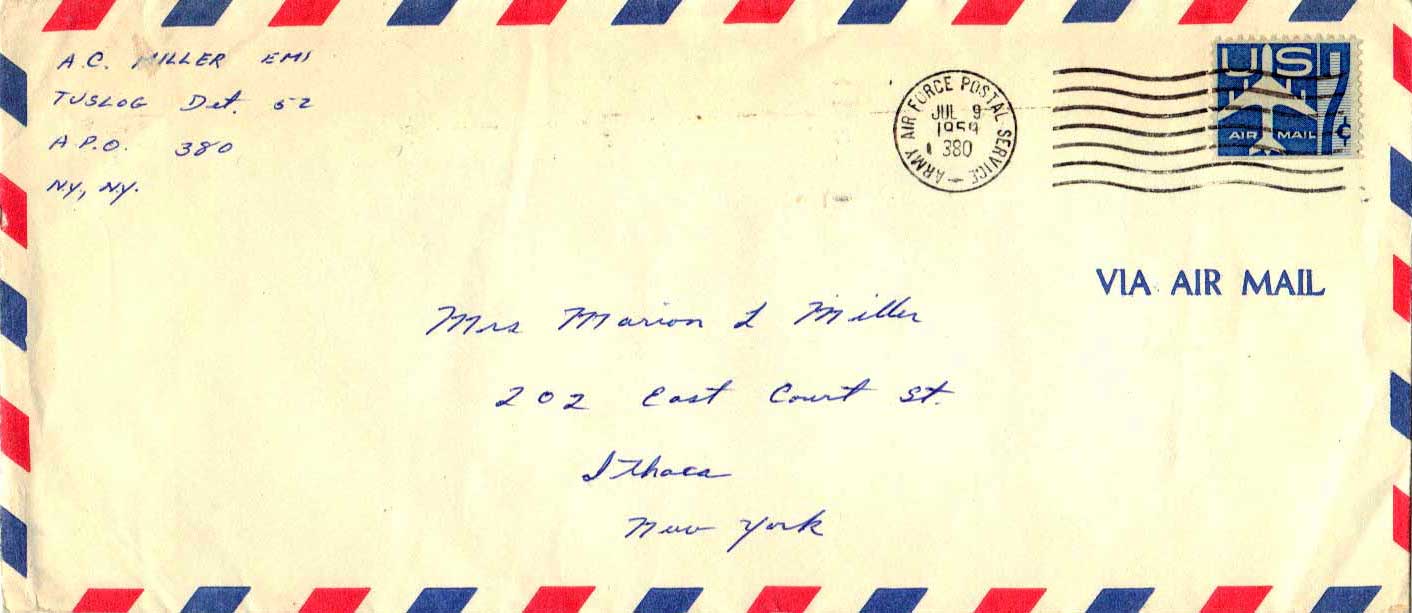 A.C. MILLER EM1
TUSLOG Det. 52
A.P.O. 380
NY, NY.
ARMY AIR FORCE POSTAL SERVICE
JUL 9
1959
380
US 7¢
AIR MAIL
VIA AIR MAIL
Mrs Marion L Miller
202 East Court St.
Ithaca
New York